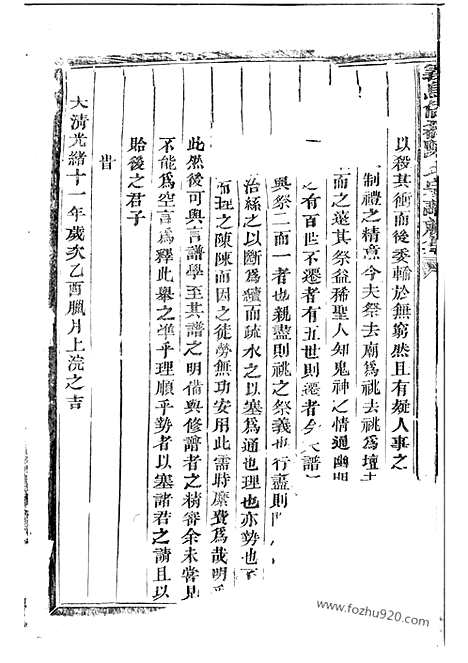 以殺其衝而後委輸於無窮然且有疑人事之
制禮之精意今夫祭去廟爲祧去祧爲壇
而之遠其祭益稀聖人知鬼神之情通幽明
之有百世不遷者有五世則遷者
與祭二而一者也親盡則祧之祭義也行盡則
治絲之以斷爲續而疏水之以塞爲通也理也亦勢也
而理之陳陳而因之徒勞無功安用此需時糜費爲哉明乎
此然後可與言譜學至其譜之明備與修譜者之精審余未嘗見
不能爲空言爲釋此舉之準乎理順乎勢者以塞諸君之請且以
貽後之君子
旹
大清光緒十一年歲次乙酉臘月上浣之吉
www.fozhu920.com